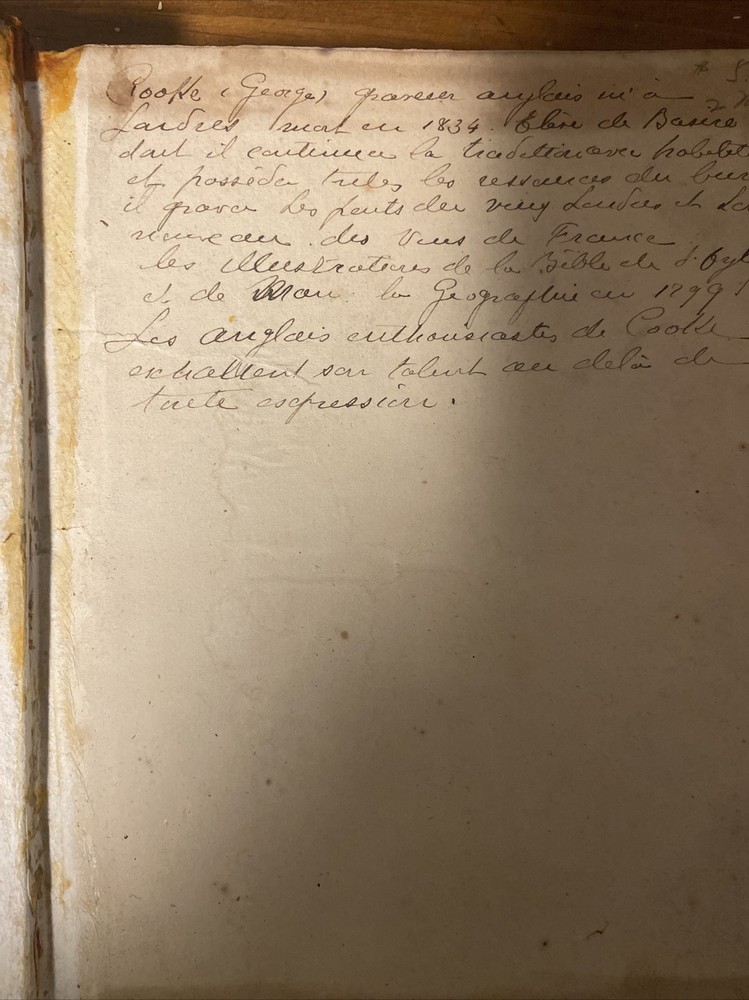 Cooke (George) graveur anglais né à
Londres mort en 1834. Elève de Basire
dont il continua la tradition avec habilet
et posséda toutes les ressources du bur
il grava les ponts du vieux Londres et Lo
nouveau. des Vues de France
les illustrations de la Bible de d'Oyl
et de Man la Geographie en 1799
Les anglais enthousiastes de Cooke
exhaltent son talent au delà de
toute expression.